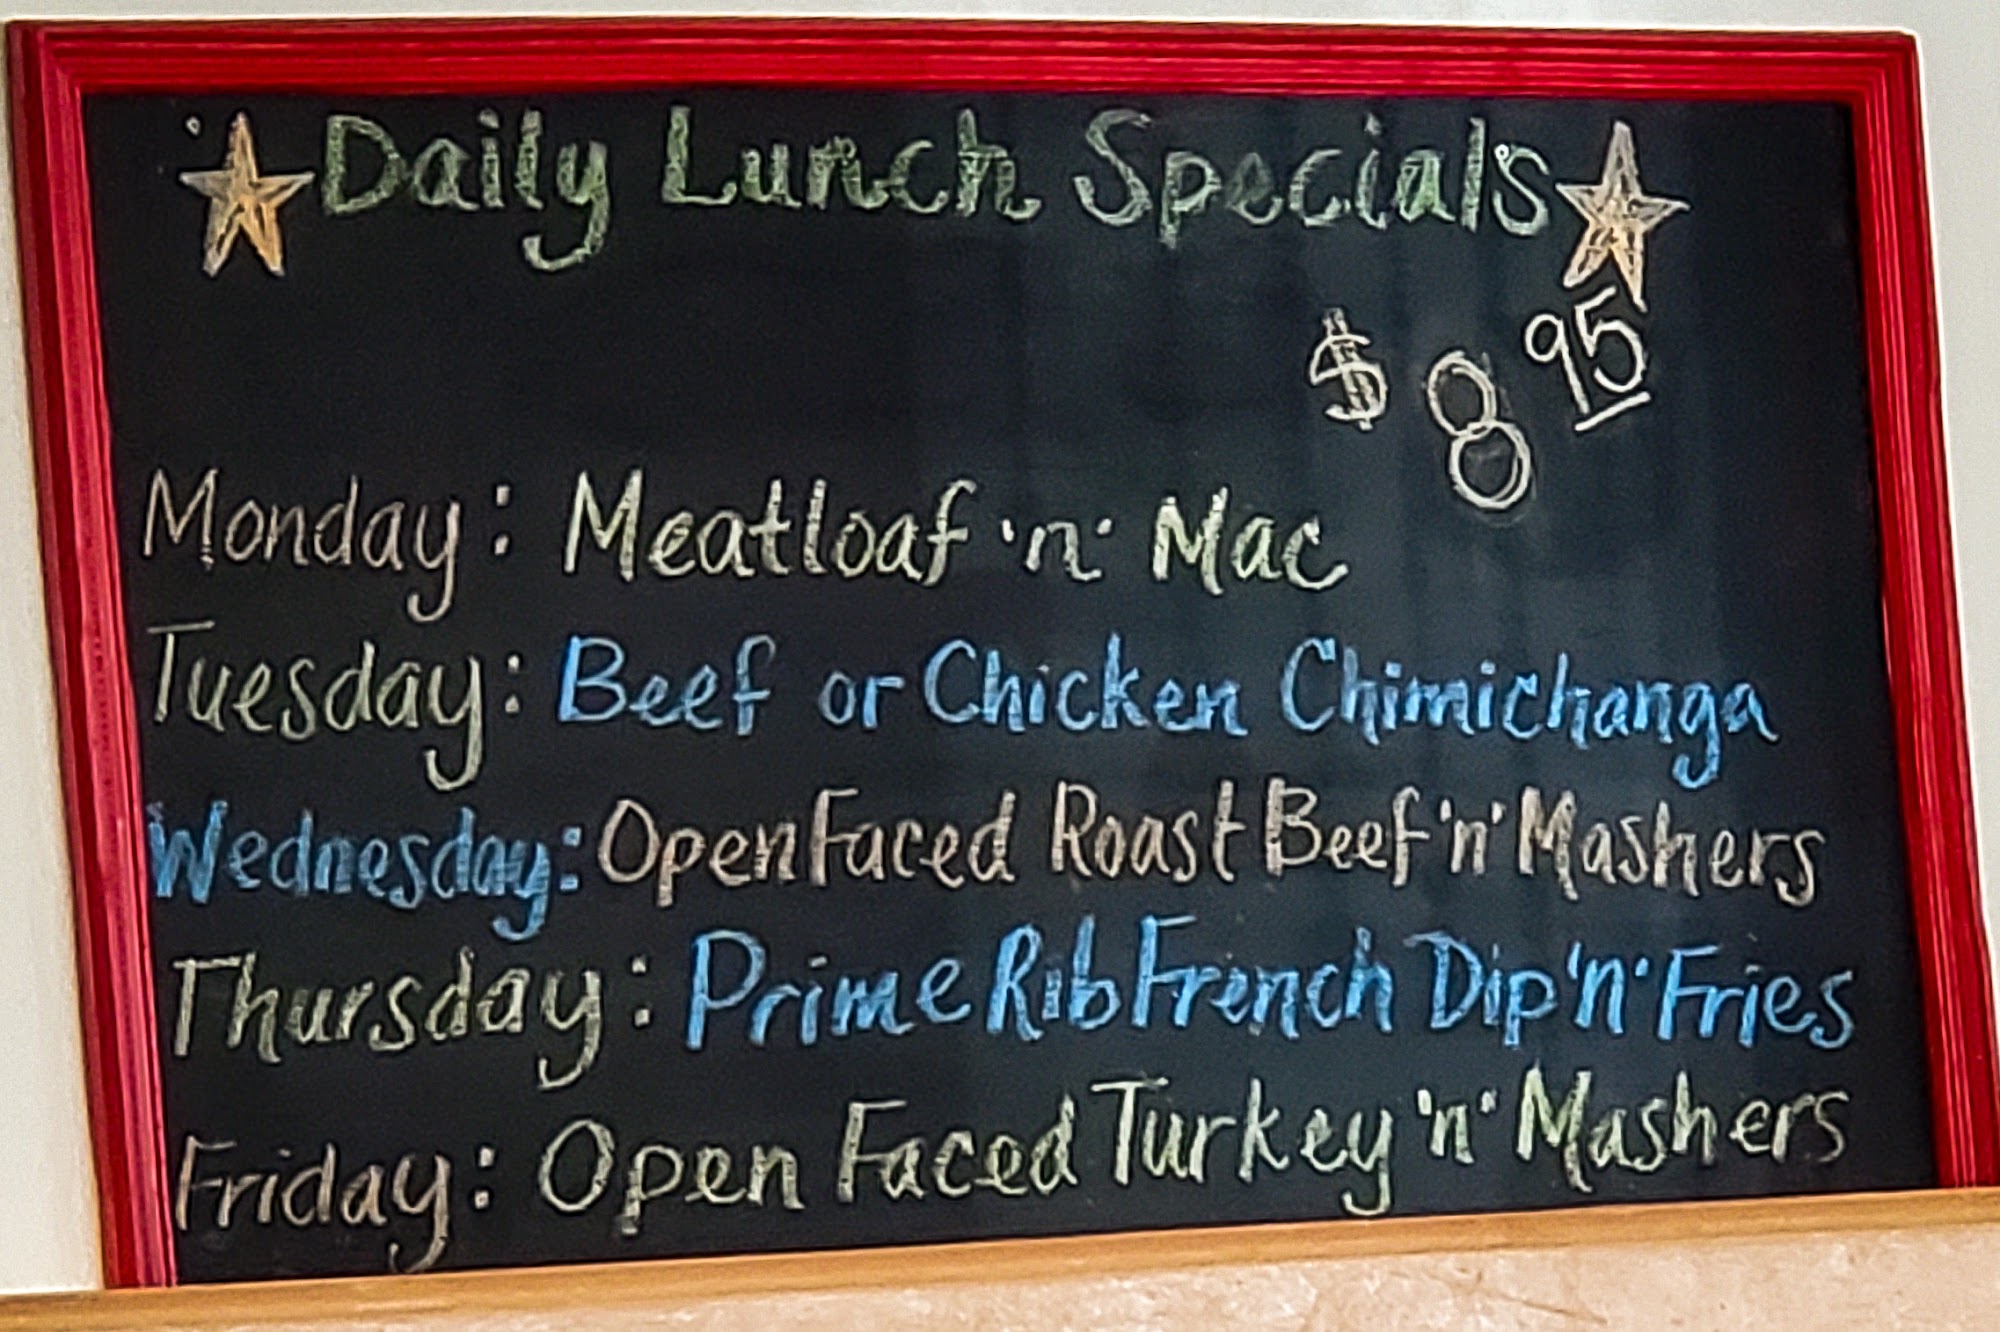 Daily Lunch Specials
$8.95
Monday: Meatloaf 'n' Mac
Tuesday: Beef or Chicken Chimichanga
Wednesday: Open Faced Roast Beef 'n' Mashers
Thursday: Prime Rib French Dip 'n' Fries
Friday: Open Faced Turkey 'n' Mashers